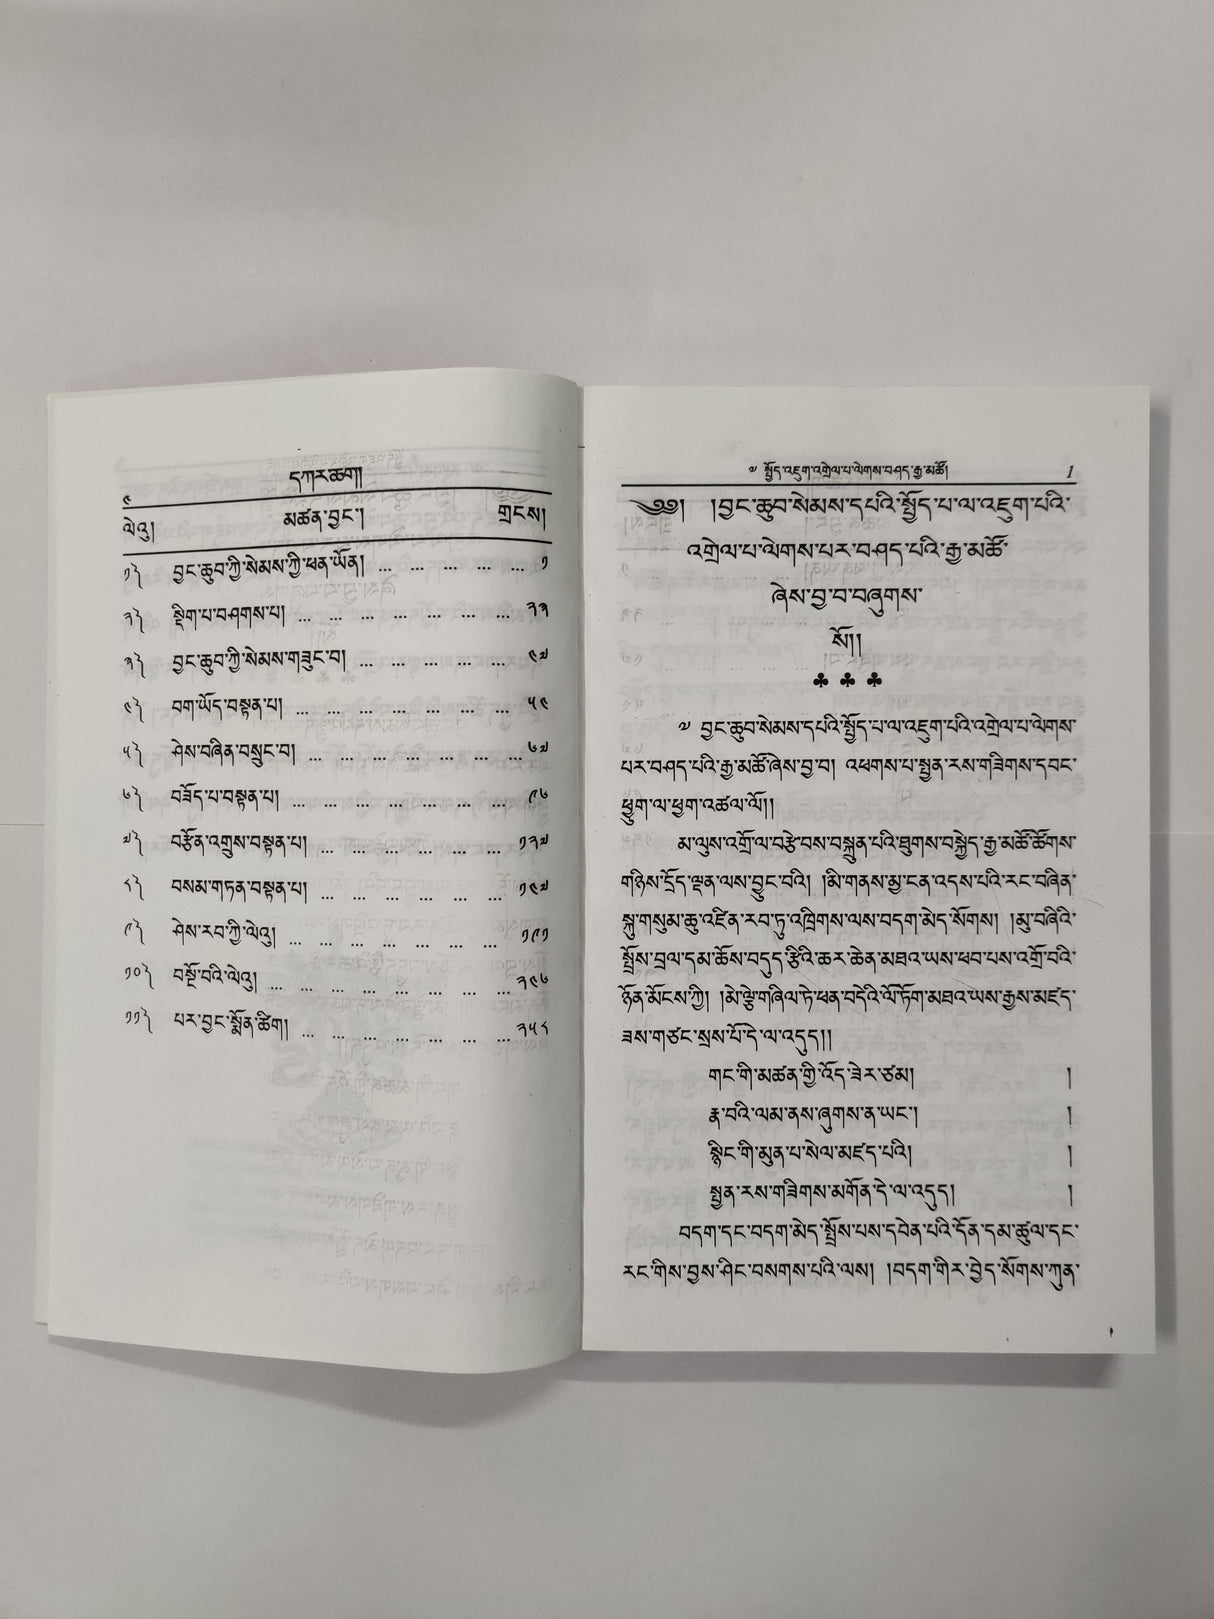 དཀར་ཆག།
༤
ལེའུ། མཚན་བྱང་། གྲངས།
༡༽ བྱང་ཆུབ་ཀྱི་སེམས་ཀྱི་ཕན་ཡོན། ... ... ... ... ... ༡
༢༽ སྡིག་པ་བཤགས་པ། ... ... ... ... ... ... ... ༢༢
༣༽ བྱང་ཆུབ་ཀྱི་སེམས་གཟུང་བ། ... ... ... ... ... ༤༧
༤༽ བག་ཡོད་བསྟན་པ། ... ... ... ... ... ... ... ༥༤
༥༽ ཤེས་བཞིན་བསྲུང་བ། ... ... ... ... ... ... ... ༦༧
༦༽ བཟོད་པ་བསྟན་པ། ... ... ... ... ... ... ... ༩༦
༧༽ བརྩོན་འགྲུས་བསྟན་པ། ... ... ... ... ... ... ༡༢༧
༨༽ བསམ་གཏན་བསྟན་པ། ... ... ... ... ... ... ༡༤༧
༩༽ ཤེས་རབ་ཀྱི་ལེའུ། ... ... ... ... ... ... ... ༡༩༡
༡༠༽ བསྔོ་བའི་ལེའུ། ... ... ... ... ... ... ... ... ༢༤༦
༡༡༽ པར་བྱང་སྨོན་ཚིག། ... ... ... ... ... ... ... ༢༥༨
༧ སྤྱོད་འཇུག་འགྲེལ་པ་ལེགས་བཤད་རྒྱ་མཚོ། 1
༄༅། །བྱང་ཆུབ་སེམས་དཔའི་སྤྱོད་པ་ལ་འཇུག་པའི་
འགྲེལ་པ་ལེགས་པར་བཤད་པའི་རྒྱ་མཚོ་
ཞེས་བྱ་བ་བཞུགས་
སོ།།
♣ ♣ ♣
༧ བྱང་ཆུབ་སེམས་དཔའི་སྤྱོད་པ་ལ་འཇུག་པའི་འགྲེལ་པ་ལེགས་
པར་བཤད་པའི་རྒྱ་མཚོ་ཞེས་བྱ་བ། འཕགས་པ་སྤྱན་རས་གཟིགས་དབང་
ཕྱུག་ལ་ཕྱག་འཚལ་ལོ།།
མ་ལུས་འགྲོ་ལ་བརྩེ་བས་བསྐྲུན་པའི་ཐུགས་བསྐྱེད་རྒྱ་མཚོ་ཚོགས་
གཉིས་དྲོད་ལྡན་ལས་བྱུང་བའི། །མི་གནས་མྱ་ངན་འདས་པའི་རང་བཞིན་
སྐུ་གསུམ་ཆུ་འཛིན་རབ་ཏུ་འཁྲིགས་ལས་བདག་མེད་སོགས། །མུ་བཞིའི་
སྤྲོས་བྲལ་དམ་ཆོས་བདུད་རྩིའི་ཆར་ཆེན་མཐའ་ཡས་ཕབ་པས་འགྲོ་བའི་
ཉོན་མོངས་ཀྱི། །མེ་ལྕེ་གཞིལ་ཏེ་ཕན་བདེའི་ལོ་ཏོག་མཐའ་ཡས་རྒྱས་མཛད་
ཟས་གཙང་སྲས་པོ་དེ་ལ་འདུད།།
གང་གི་མཚན་གྱི་འོད་ཟེར་ཙམ། །
རྣ་བའི་ལམ་ནས་ཞུགས་ན་ཡང་། །
སྙིང་གི་མུན་པ་སེལ་མཛད་པའི། །
སྤྱན་རས་གཟིགས་མགོན་དེ་ལ་འདུད། །
བདག་དང་བདག་མེད་སྤྲོས་པས་དབེན་པའི་དོན་དམ་ཚུལ་དང་
རང་གིས་བྱས་ཤིང་བསགས་པའི་ལས། །བདག་གིར་བྱེད་སོགས་ཀུན་